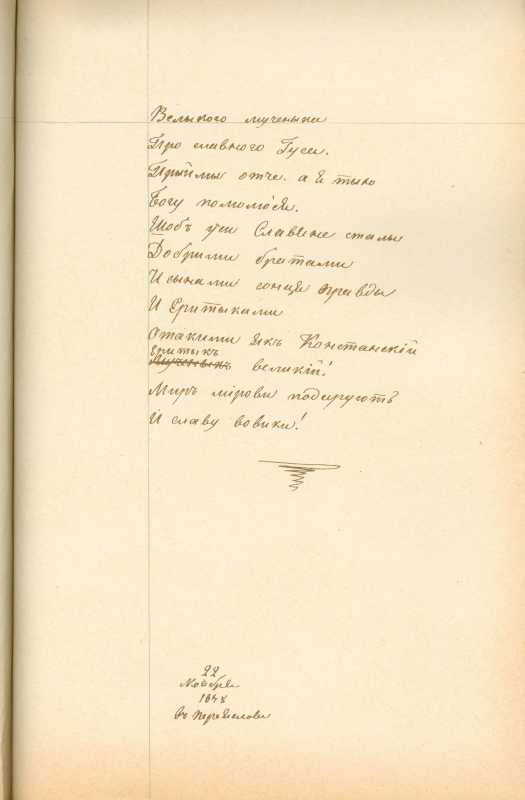 Велыкого мученыка
Про славного Гуса.
Прыймы отче. а я тыхо
Богу помолюся.
Щобъ уси Славяне сталы
Добрыми братами
И сынами сонця правды
И Еритыками
Отакими якъ Констанскій
Еритыкъ
Мученыкъ великій!
Миръ мірови подаруютъ
И славу вовики!
22
Ноября
184
въ Переяслови